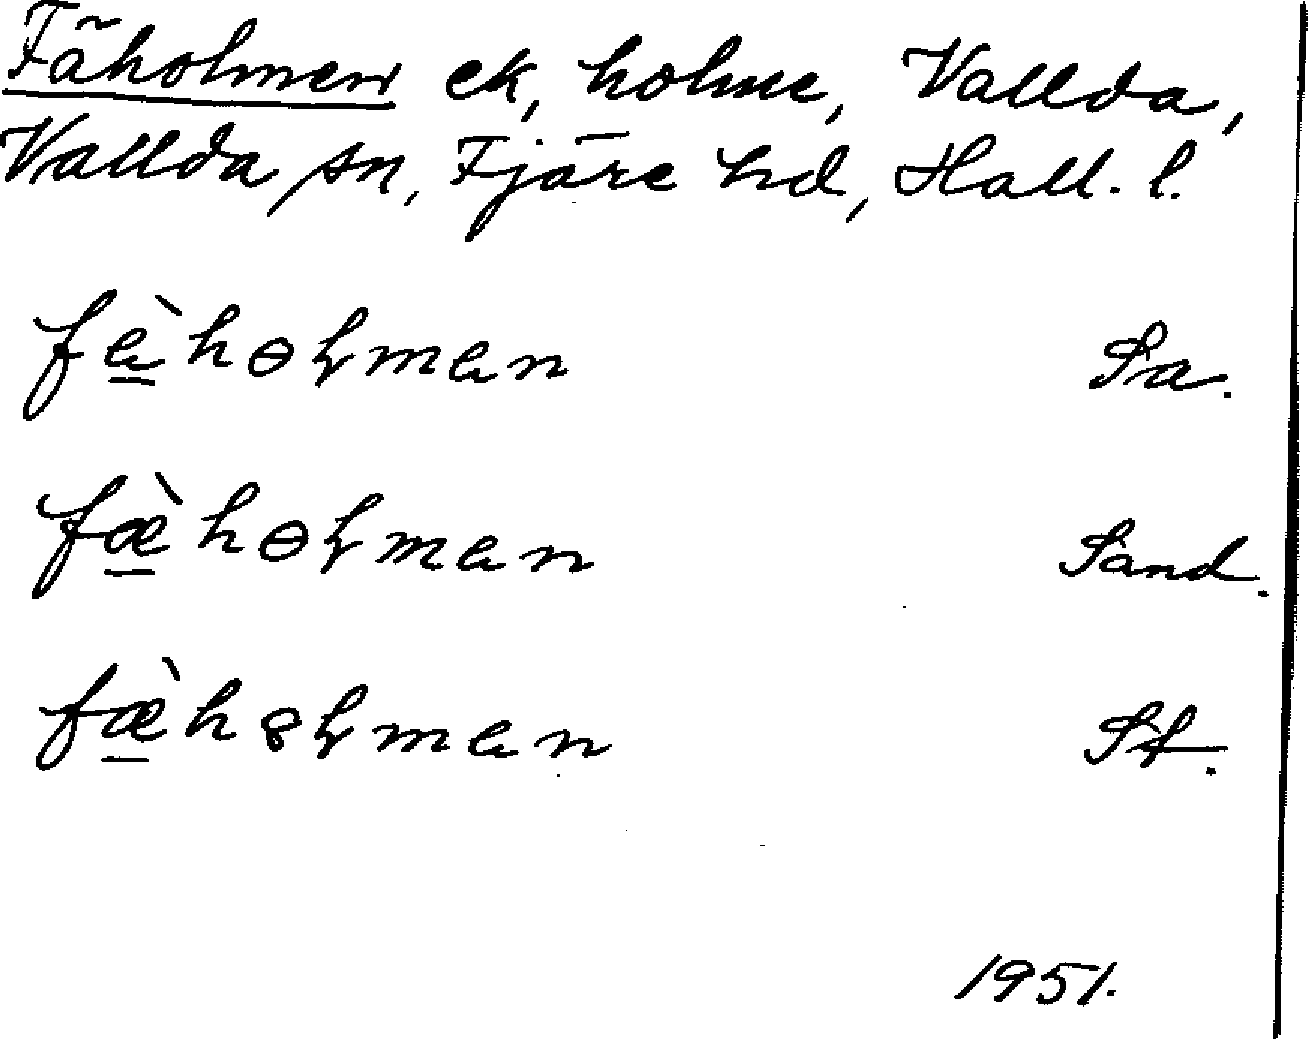 Fäholmen ek, holme, Vallda,
Vallda sn, Fjäre hd, Hall. l.
fà̱hɵɽman Sa.
fæ̱̀hɵɽman Sand.
fæ̱̀h8ɽman St.
1951.